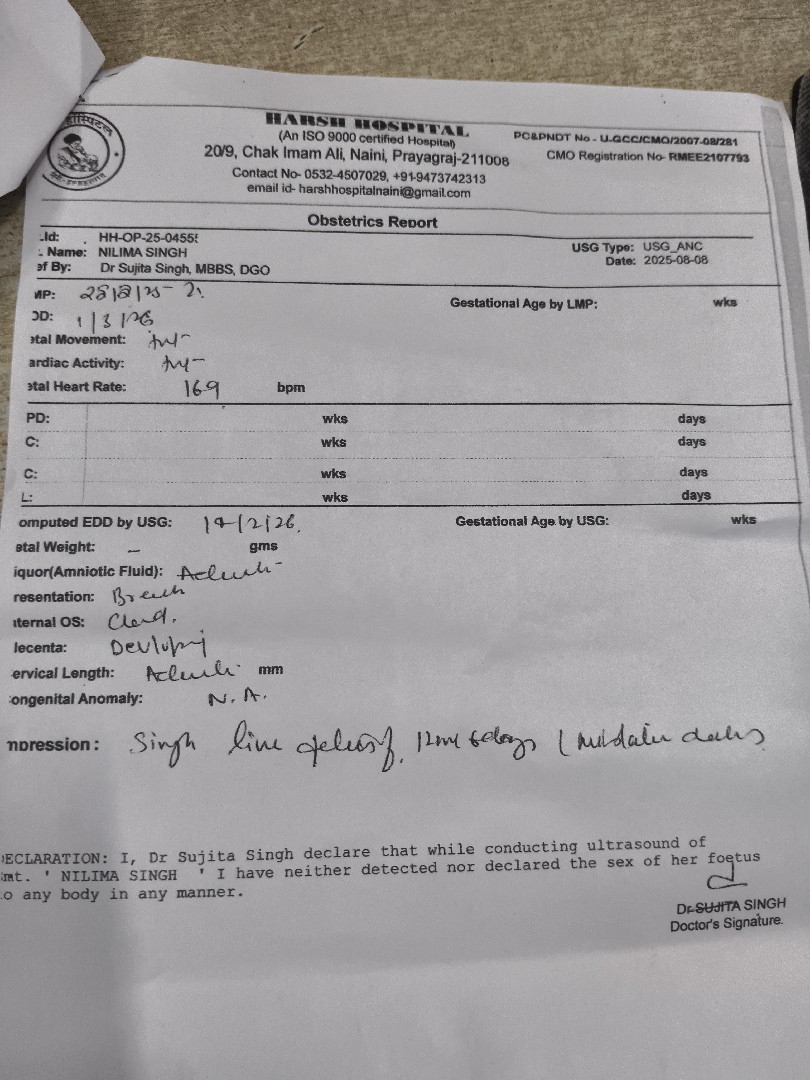 HARSH HOSPITAL
(An ISO 9000 certified Hospital)
20/9, Chak Imam Ali, Naini, Prayagraj-211008
Contact No- 0532-4507029, +91-9473742313
email id- harshhospitalnaini@gmail.com
PC&PNDT No - U-GCC/CMO/2007-08/281
CMO Registration No- RMEE2107793
Obstetrics Report
.Id: HH-OP-25-0455
. Name: NILIMA SINGH
ef By: Dr Sujita Singh, MBBS, DGO
USG Type: USG_ANC
Date: 2025-08-08
MP:
Gestational Age by LMP: wks
DD: 1/3/26
etal Movement:
ardiac Activity:
etal Heart Rate: 169 bpm
PD: wks days
C: wks days
C: wks days
L: wks days
omputed EDD by USG: 14/2/26. Gestational Age by USG: wks
etal Weight: – gms
iquor(Amniotic Fluid):
resentation: Breech
iternal OS:
lecenta:
ervical Length: mm
ongenital Anomaly: N.A.
mpression: Singh live
DECLARATION: I, Dr Sujita Singh declare that while conducting ultrasound of
mt. ' NILIMA SINGH ' I have neither detected nor declared the sex of her foetus
o any body in any manner.
Dr.SUJITA SINGH
Doctor's Signature.